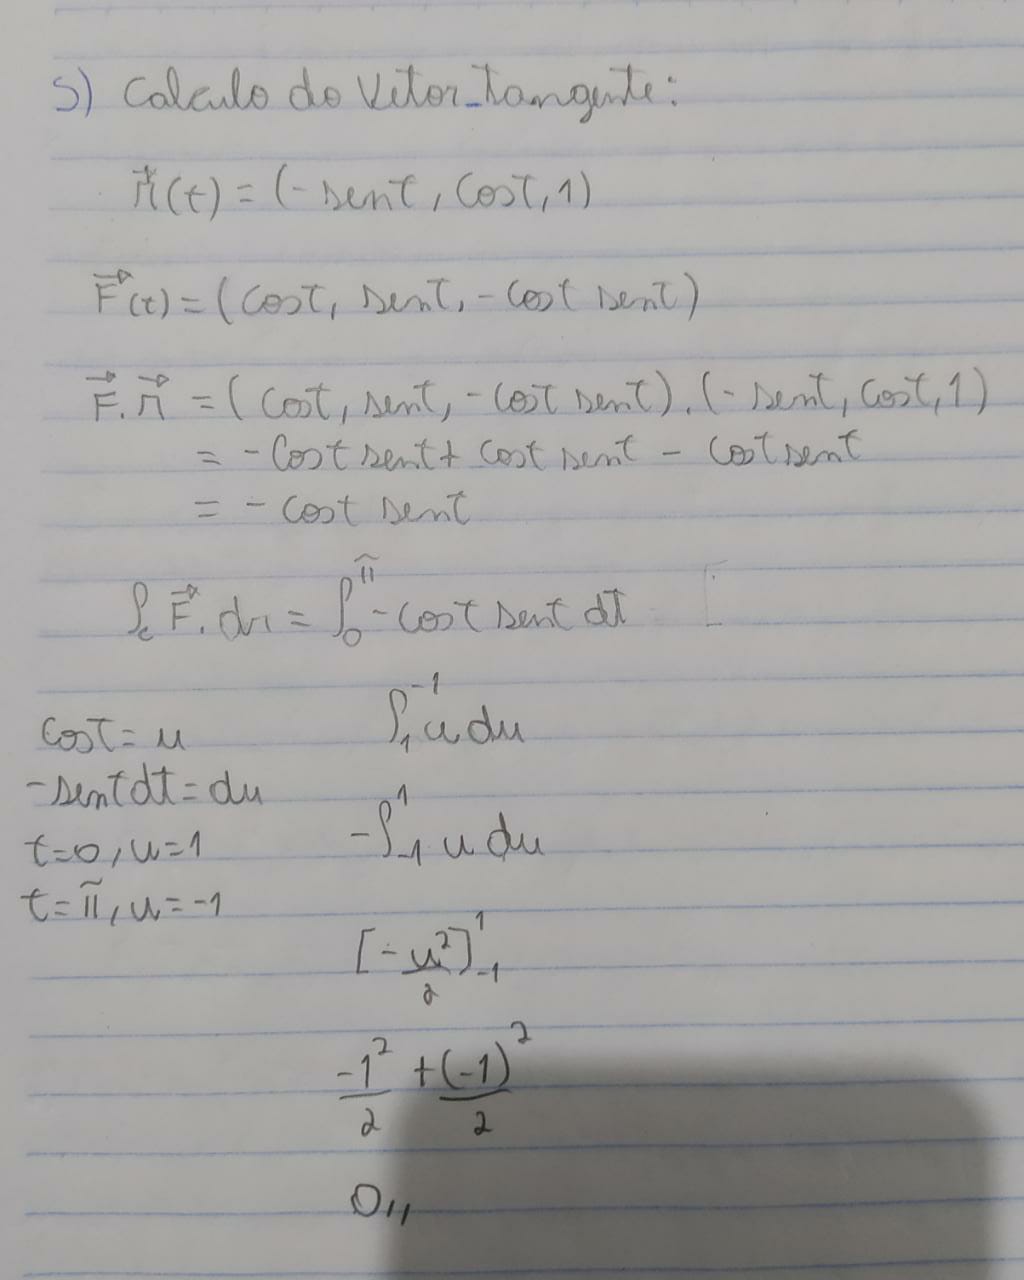 5) Calculo do Vetor_tangente:
r⃗(t) = (-sent, cost, 1)
F⃗(t) = (cost, sent, -cost sent)
F⃗.r⃗ = (cost, sent, -cost sent).(-sent, cost, 1)
= -cost sent + cost sent - cost sent
= -cost sent
∫c F⃗.dr = ∫0^π -cost sent dt
cost = u
-sent dt = du
t=0, u=1
t=π, u=-1
∫1^-1 u du
-∫-1^1 u du
[-u²/2]-1^1
-1²/2 + (-1)²/2
0,,